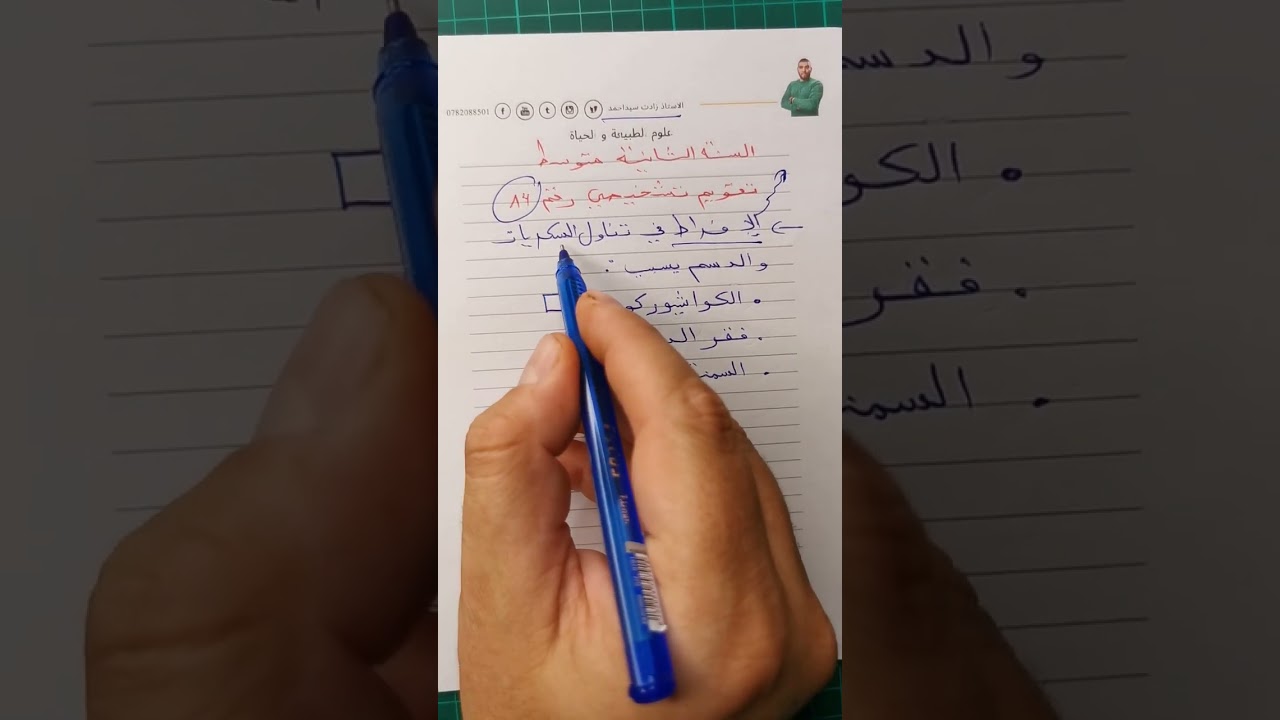 الاستاذ زادت سيداحمد 0782088501
علوم الطبيعة و الحياة
السنة الثانية متوسط
تقويم تشخيصي رقم
الإفراط في تناول السكريات
والدسم يسبب :
• الكواشيوركو
• فقر الد
• السمنة